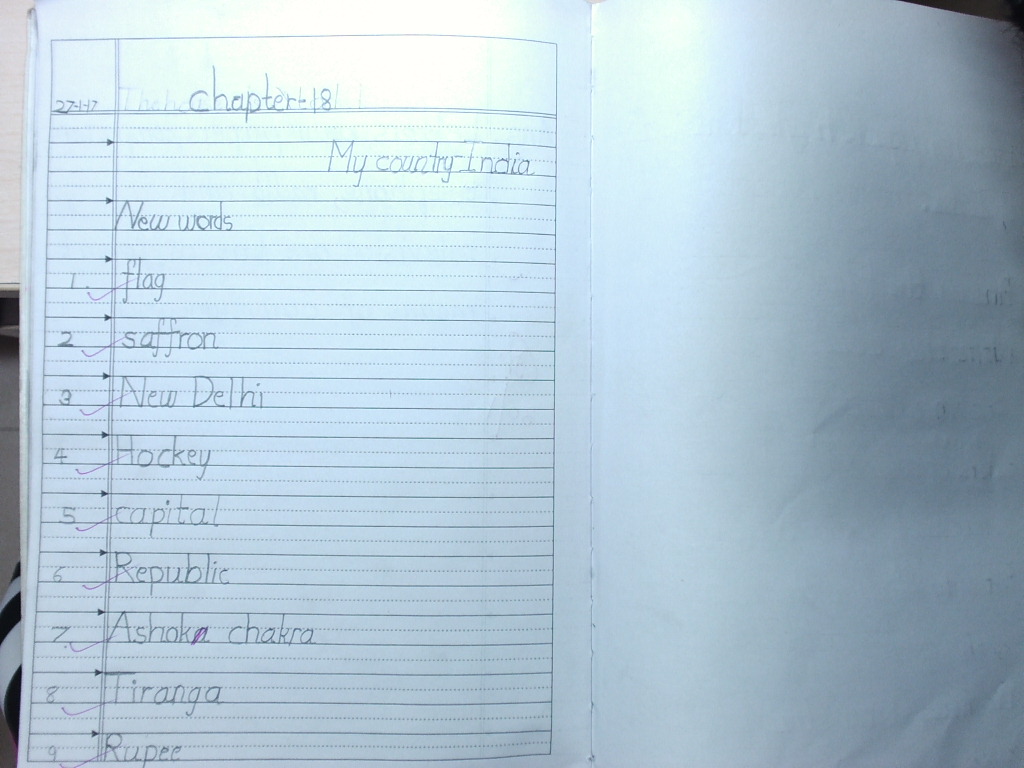 27-1-17 chapter-18
My country-India
New words
1. flag
2 saffron
3 New Delhi
4 Hockey
5 capital
6 Republic
7. Ashoka chakra
8 Tiranga
9 Rupee